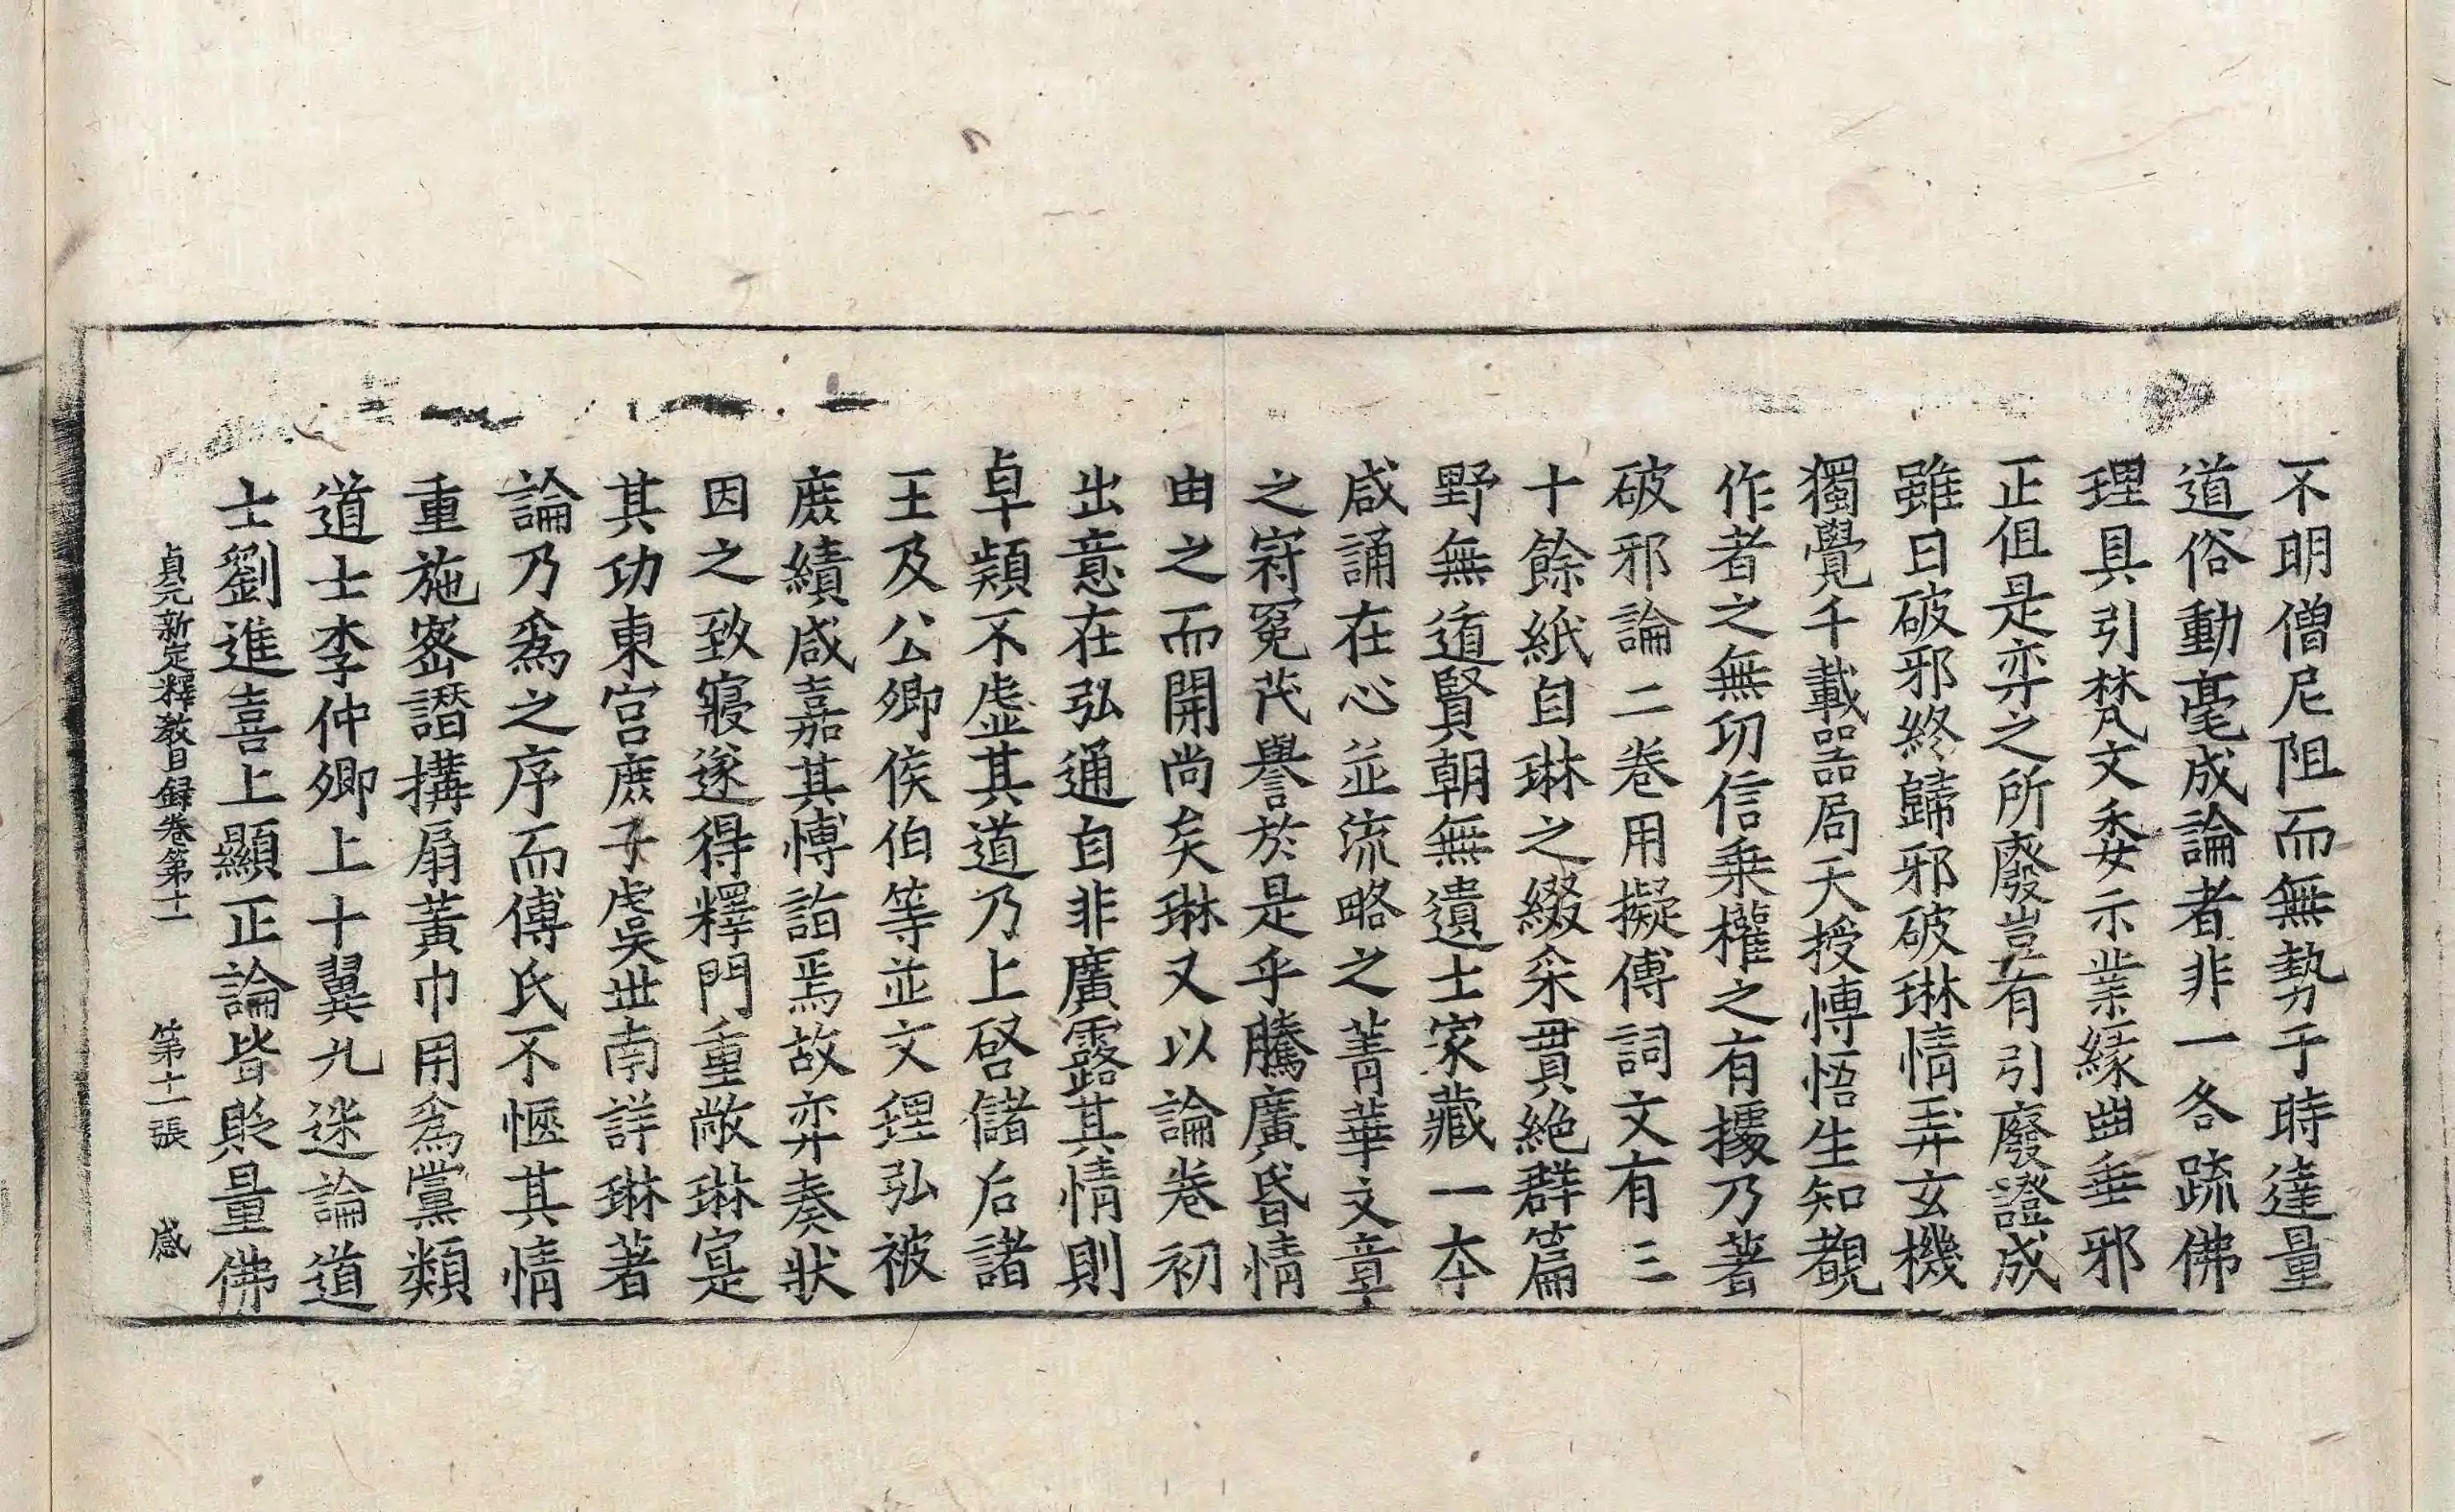 不明僧尼阻而無勢于時達量
道俗動毫成論者非一各疏佛
理具引梵文委示業緣曲垂邪
正但是弈之所廢豈有引廢證成
雖曰破邪終歸邪破琳情弄玄機
獨覺千載器局天授博悟生知覩
作者之無功信乗權之有據乃著
破邪論二卷用擬傅詞文有三
十餘紙自琳之綴采貫絶群篇
野無遺賢朝無遺士家藏一本
咸誦在心並流略之菁華文章
之冠冕茂譽於是乎騰廣昏情
由之而開尚矣琳又以論卷初
出意在弘通自非廣露其情則
皁顈不虛其道乃上啓儲后諸
王及公卿侯伯等並文理弘被
庶績咸嘉其博詣焉故弈奏狀
因之致寢遂得釋門重敞琳寔
其功東宮庶子虞世南詳琳著
論乃爲之序而傅氏不愜其情
重施密譖搆扇黃巾用爲黨類
道士李仲卿上十異九迷論道
士劉進喜上顯正論皆貶量佛
貞元新定釋教目録卷第十一　第十二張　感